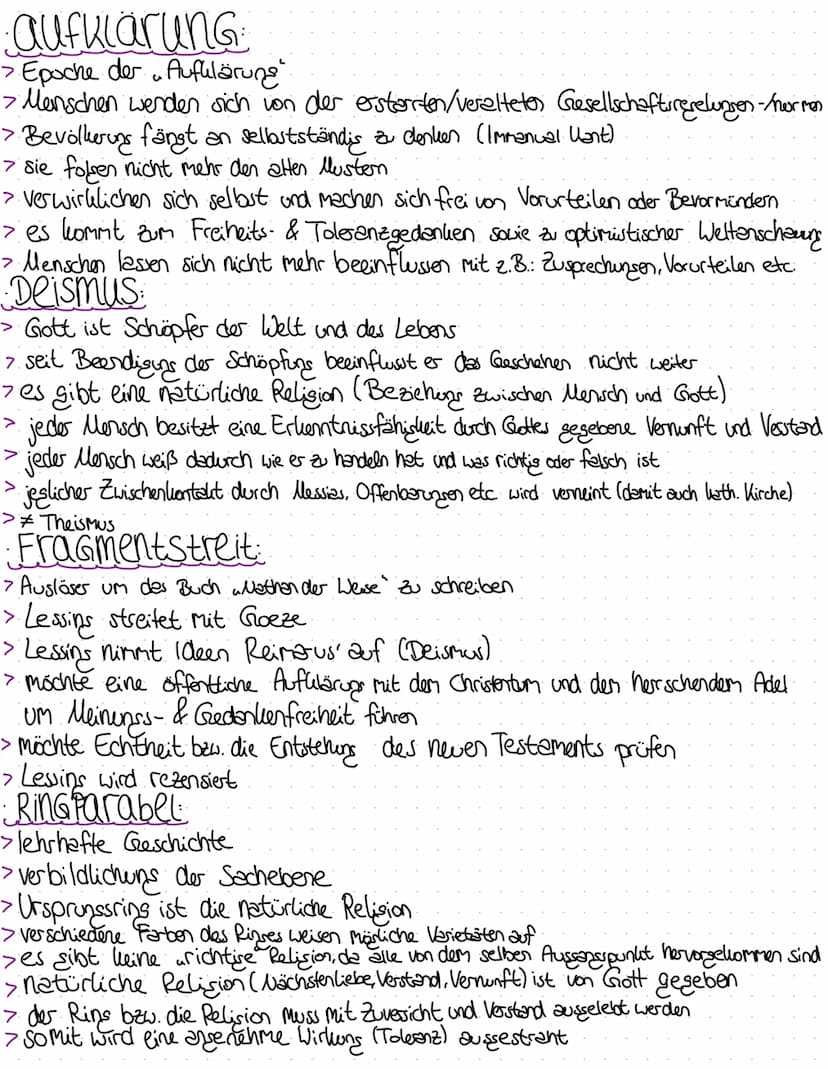 AUFKLÄRUNG:
> Epoche der „Aufklärung"
> Menschen wenden sich von der erstarrten/veralteten Gesellschaftsregelungen -/normen
> Bevölkerung fängt an selbstständig zu denken (Immanuel Kant)
> sie folgen nicht mehr den alten Mustern
> verwirklichen sich selbst und machen sich frei von Vorurteilen oder Bevormündern
> es kommt zum Freiheits- & Toleranzgedanken sowie zu optimistischer Weltanschauung
> Menschen lassen sich nicht mehr beeinflussen mit z.B.: Zusprechungen, Vorurteilen etc.
Deismus:
> Gott ist Schöpfer der Welt und des Lebens
> seit Beendigung der Schöpfung beeinflusst er das Geschehen nicht weiter
> es gibt eine natürliche Religion (Beziehung zwischen Mensch und Gott)
> jeder Mensch besitzt eine Erkenntnissfähigkeit durch Gottes gegebene Vernunft und Verstand
> jeder Mensch weiß dadurch wie er zu handeln hat und was richtig oder falsch ist
> jeglicher Zwischenkontakt durch Messias, Offenbarungen etc. wird verneint (damit auch kath. Kirche)
> ≠ Theismus
Fragmentstreit:
> Auslöser um das Buch „Nathan der Weise" zu schreiben
> Lessing streitet mit Goeze
> Lessing nimmt Ideen Reimarus' auf (Deismus)
> möchte eine öffentliche Aufklärung mit dem Christentum und den herrschendem Adel
um Meinungs- & Gedankenfreiheit führen
> möchte Echtheit bzw. die Entstehung des neuen Testaments prüfen
> Lessing wird rezensiert
Ringparabel:
> lehrhafte Geschichte
> verbildlichung der Sachebene
> Ursprungsring ist die natürliche Religion
> verschiedene Farben des Ringes weisen mögliche Varietäten auf
> es gibt keine „richtige" Religion, da alle von dem selben Ausgangspunkt hervorgekommen sind
> natürliche Religion (Nächstenliebe, Verstand, Vernunft) ist von Gott gegeben
> der Ring bzw. die Religion muss mit Zuversicht und Verstand ausgelebt werden
> somit wird eine angenehme Wirkung (Toleranz) ausgestrahlt